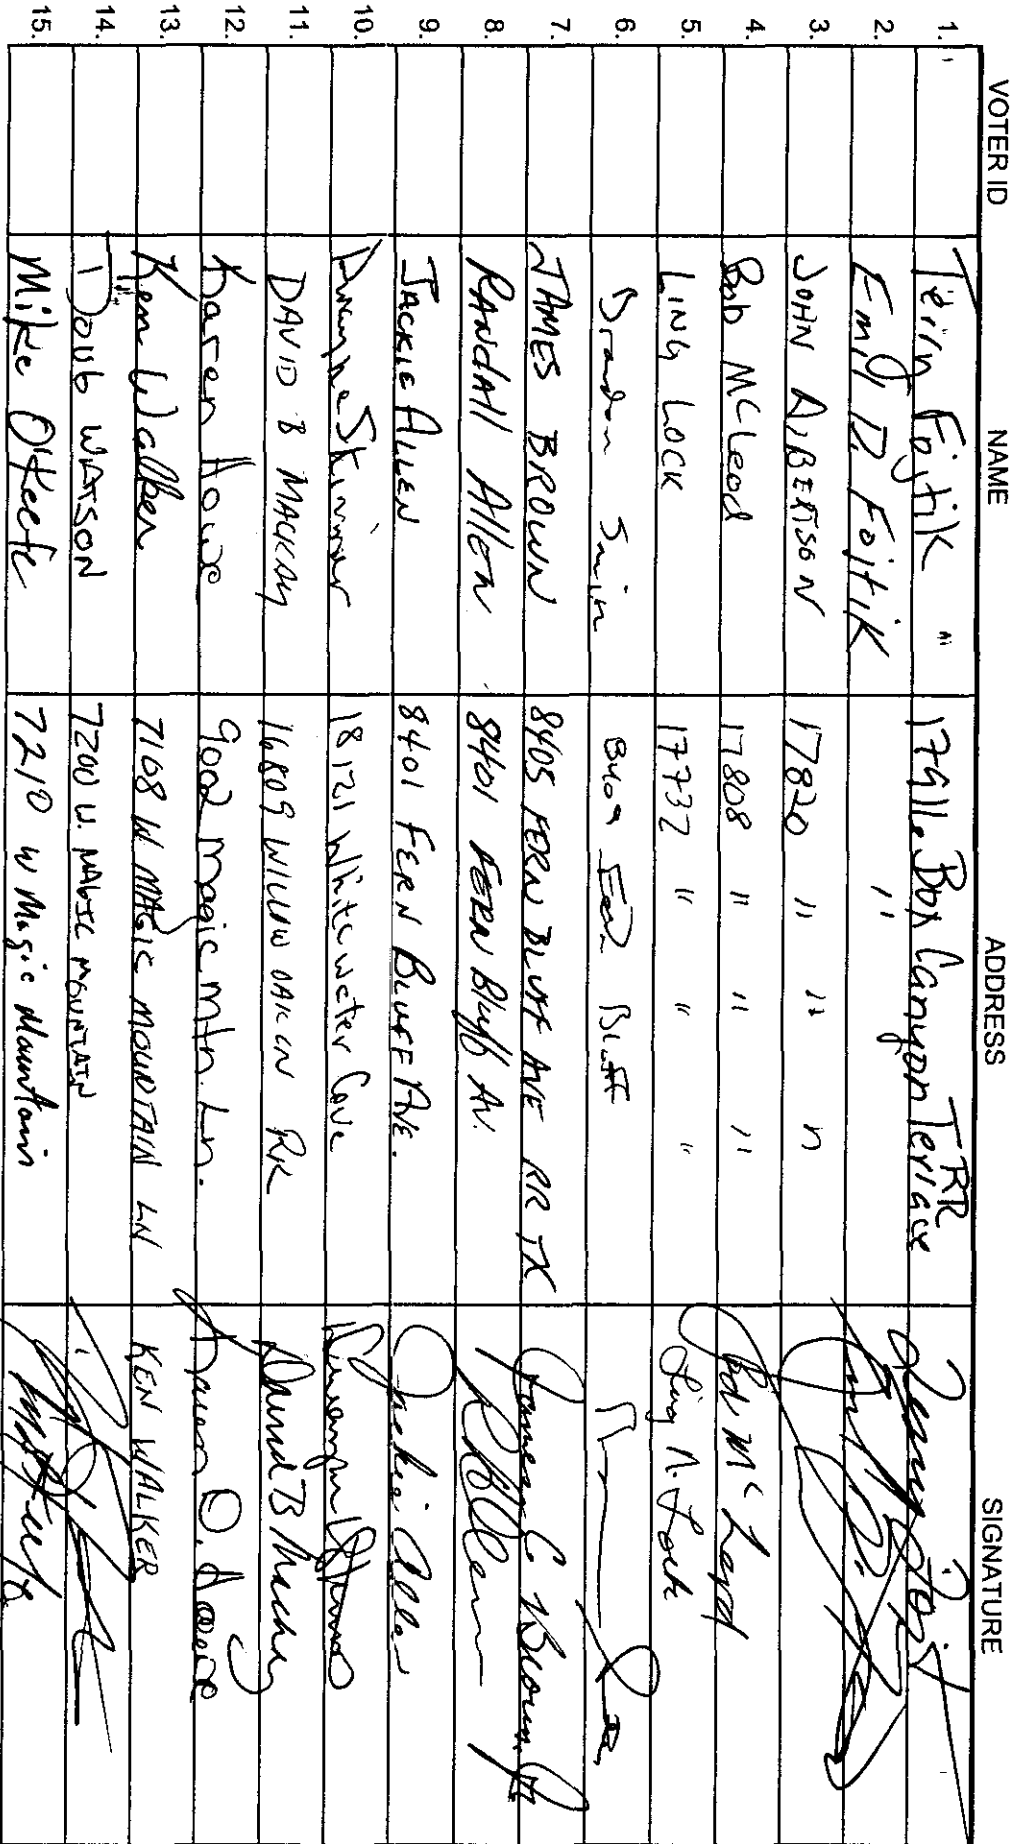 VOTER ID NAME ADDRESS SIGNATURE
1. Terry Fojtik 17911 Box Canyon Terrace RR
2. Emil D. Fojtik "
3. JOHN AlBERTSON 17820 " " "
4. Bob McLeod 17808 " " " Bob McLeod
5. LING LOCK 17732 " " " Ling N. Lock
6. Brandon 8409 Fern Bluff
7. JAMES BROWN 8405 FERN BLUFF AVE RR TX James C. Brown, Jr.
8. RANdAll Allen 8401 FERN Bluff Av. R Allen
9. JACKIE ALLEN 8401 FERN BLUFF AVE. Jackie Allen
10. Dwayne Skinner 18121 Whitewater Cove Dwayne Skinner
11. DAVID B MACKAY 16809 WILLOW OAK LN RR David B Mackay
12. Karen Howe 9002 Magic Mtn. Ln. Karen D. Howe
13. Ken Walker 7108 W MAGIC MOUNTAIN LN KEN WALKER
14. Doub WATSON 7200 W. MAGIC MOUNTAIN
15. Mike O'Keefe 7210 W Magic Mountain